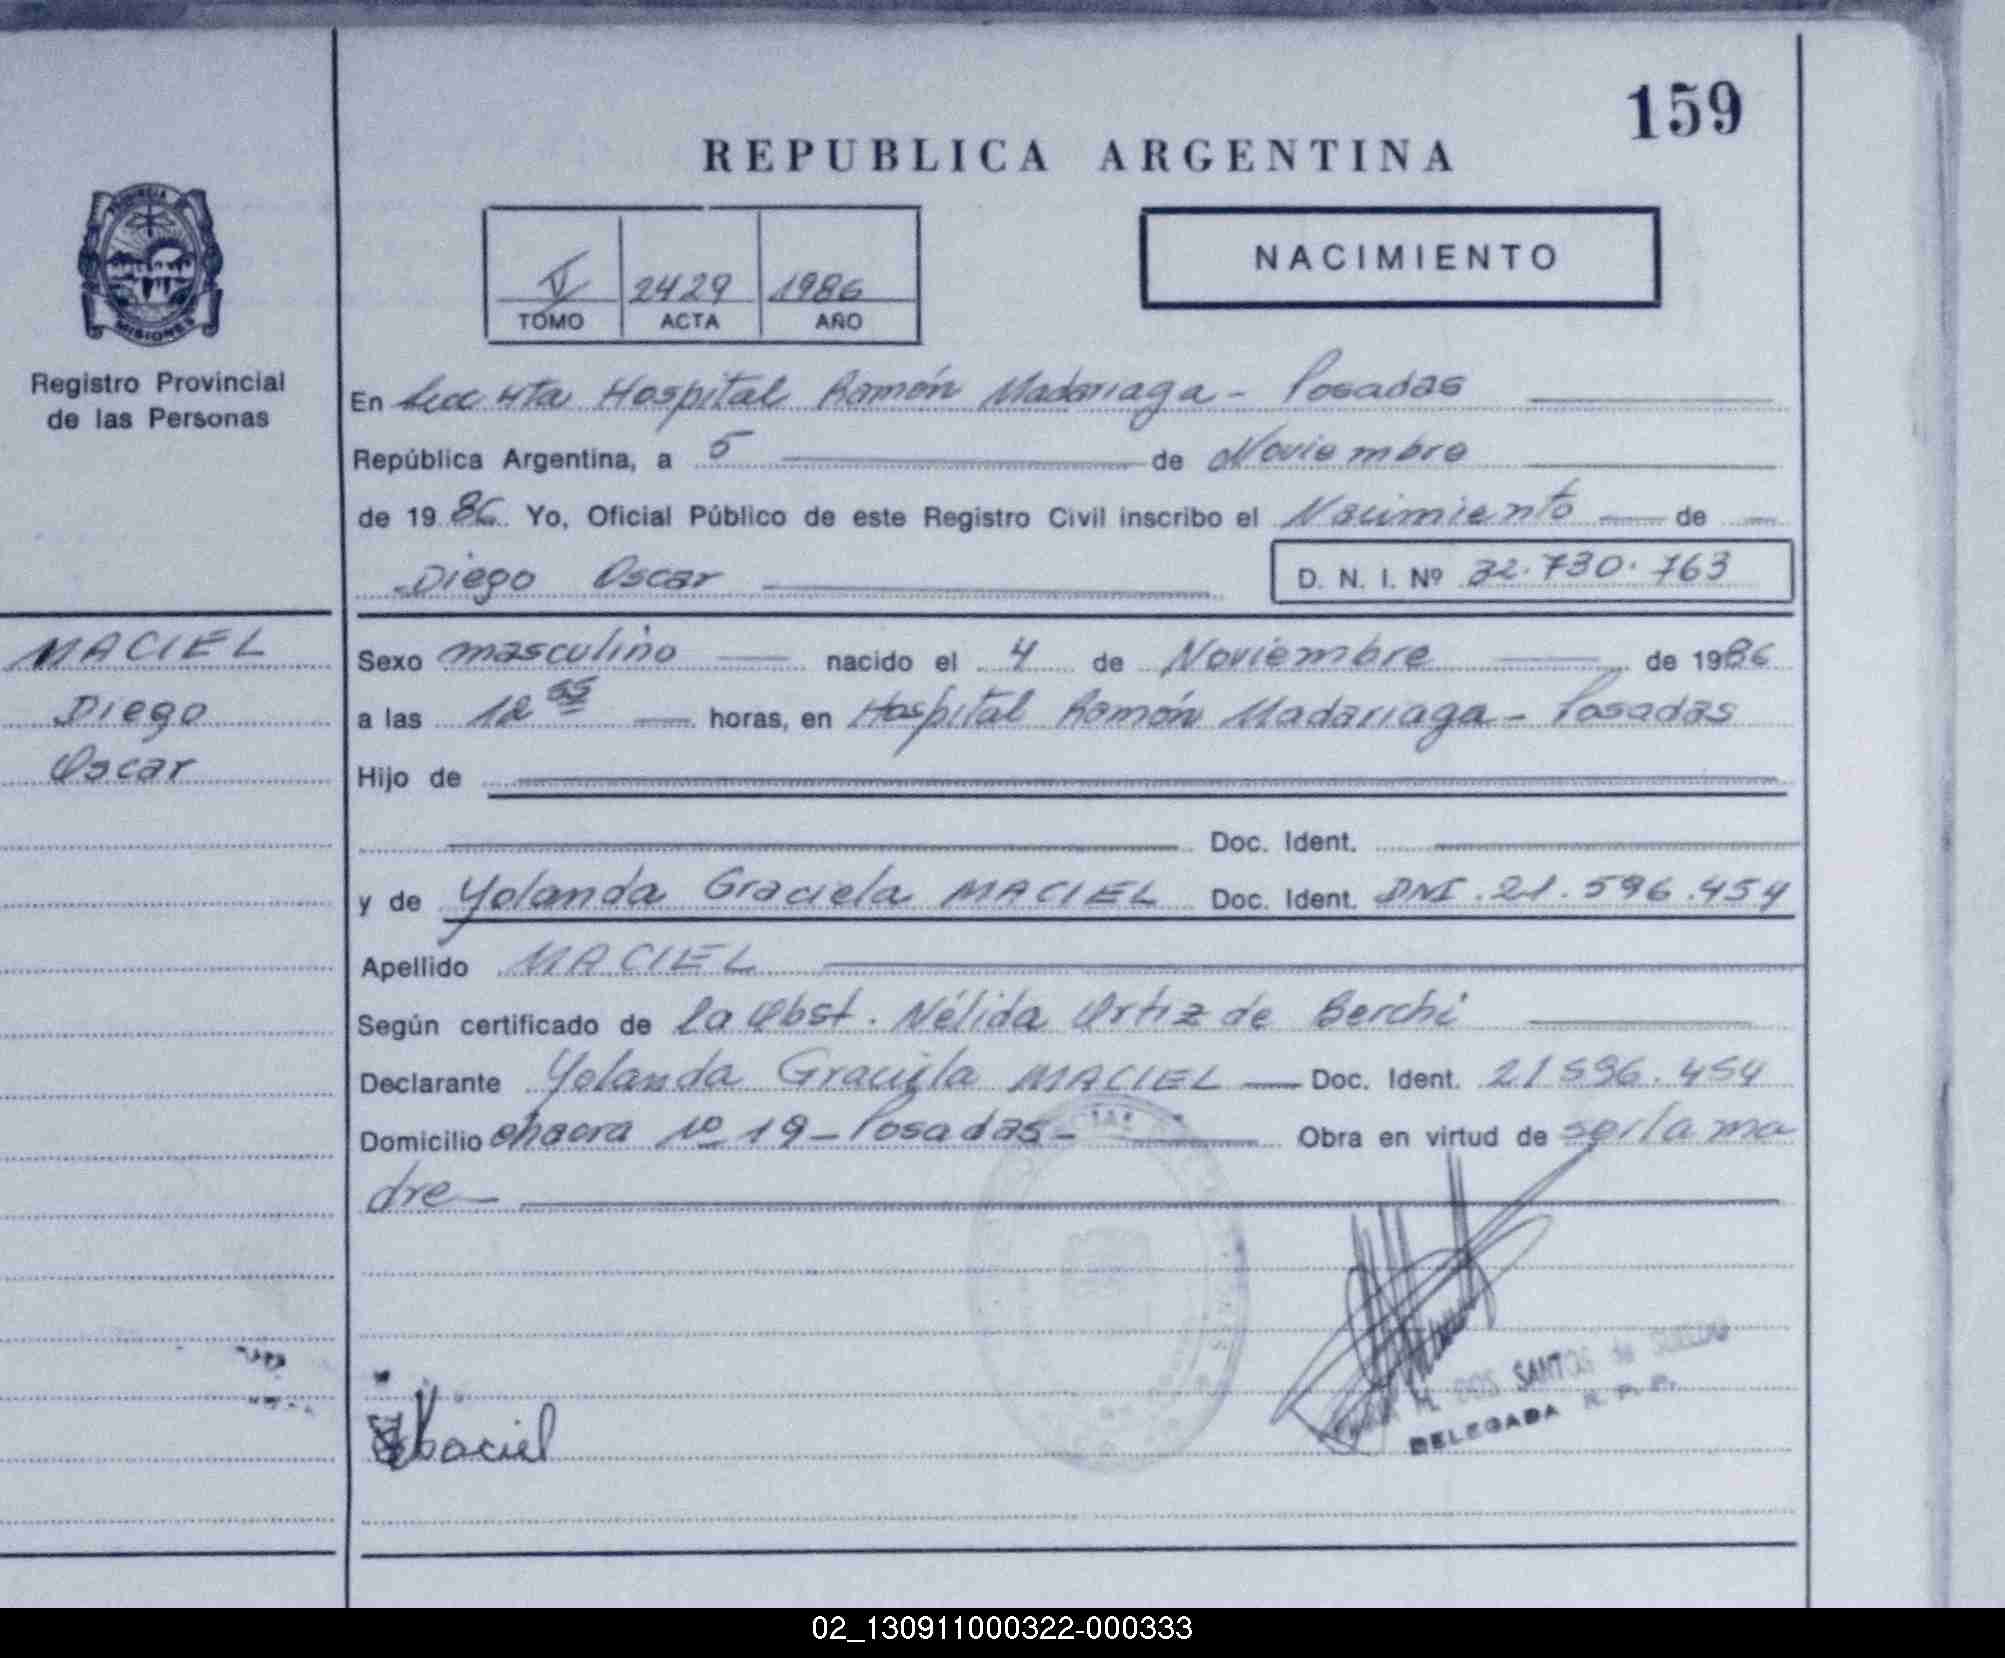 159
REPUBLICA ARGENTINA
V 2429 1986
TOMO ACTA AÑO
NACIMIENTO
PROVINCIA
MISIONES
Registro Provincial
de las Personas
En Secc 4ta Hospital Ramón Madariaga - Posadas
República Argentina, a 5 de Noviembre
de 1986 Yo, Oficial Público de este Registro Civil inscribo el Nacimiento de
Diego Oscar D. N. I. Nº 32.730.763
MACIEL
Diego
Oscar
Sexo masculino nacido el 4 de Noviembre de 1986
a las 12 55 horas, en Hospital Ramón Madariaga - Posadas
Hijo de
Doc. Ident.
y de Yolanda Graciela MACIEL Doc. Ident. DNI. 21.596.454
Apellido MACIEL
Según certificado de la Obst. Nélida Ortiz de Berchi
Declarante Yolanda Graciela MACIEL Doc. Ident. 21596.454
Domicilio chacra nº 19 - Posadas - Obra en virtud de ser la ma
dre
Maciel
M. DOS SANTOS de
DELEGADA R. P. P.
02_130911000322-000333